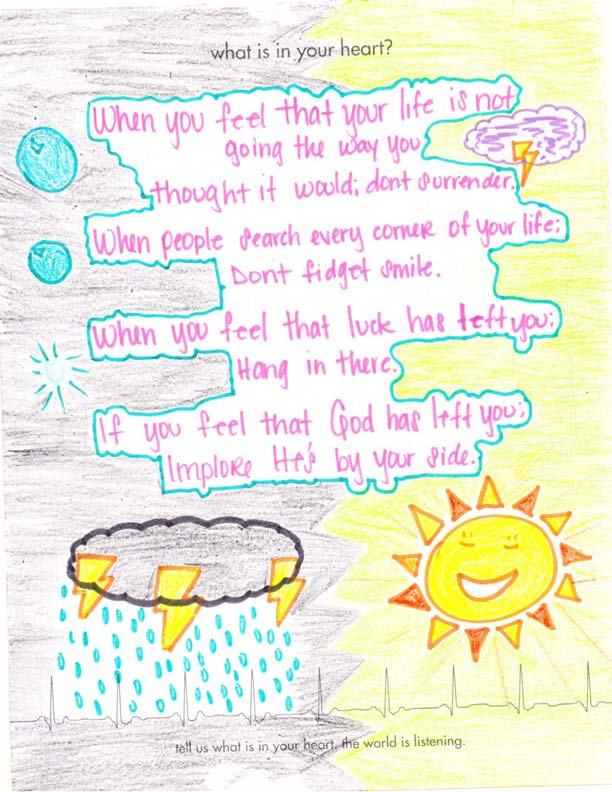 what is in your heart?
When you feel that your life is not
going the way you
thought it would; dont surrender.
When people search every corner of your life;
Dont fidget smile.
When you feel that luck has left you;
Hang in there.
If you feel that God has left you;
Implore He's by your side.
tell us what is in your heart. the world is listening.